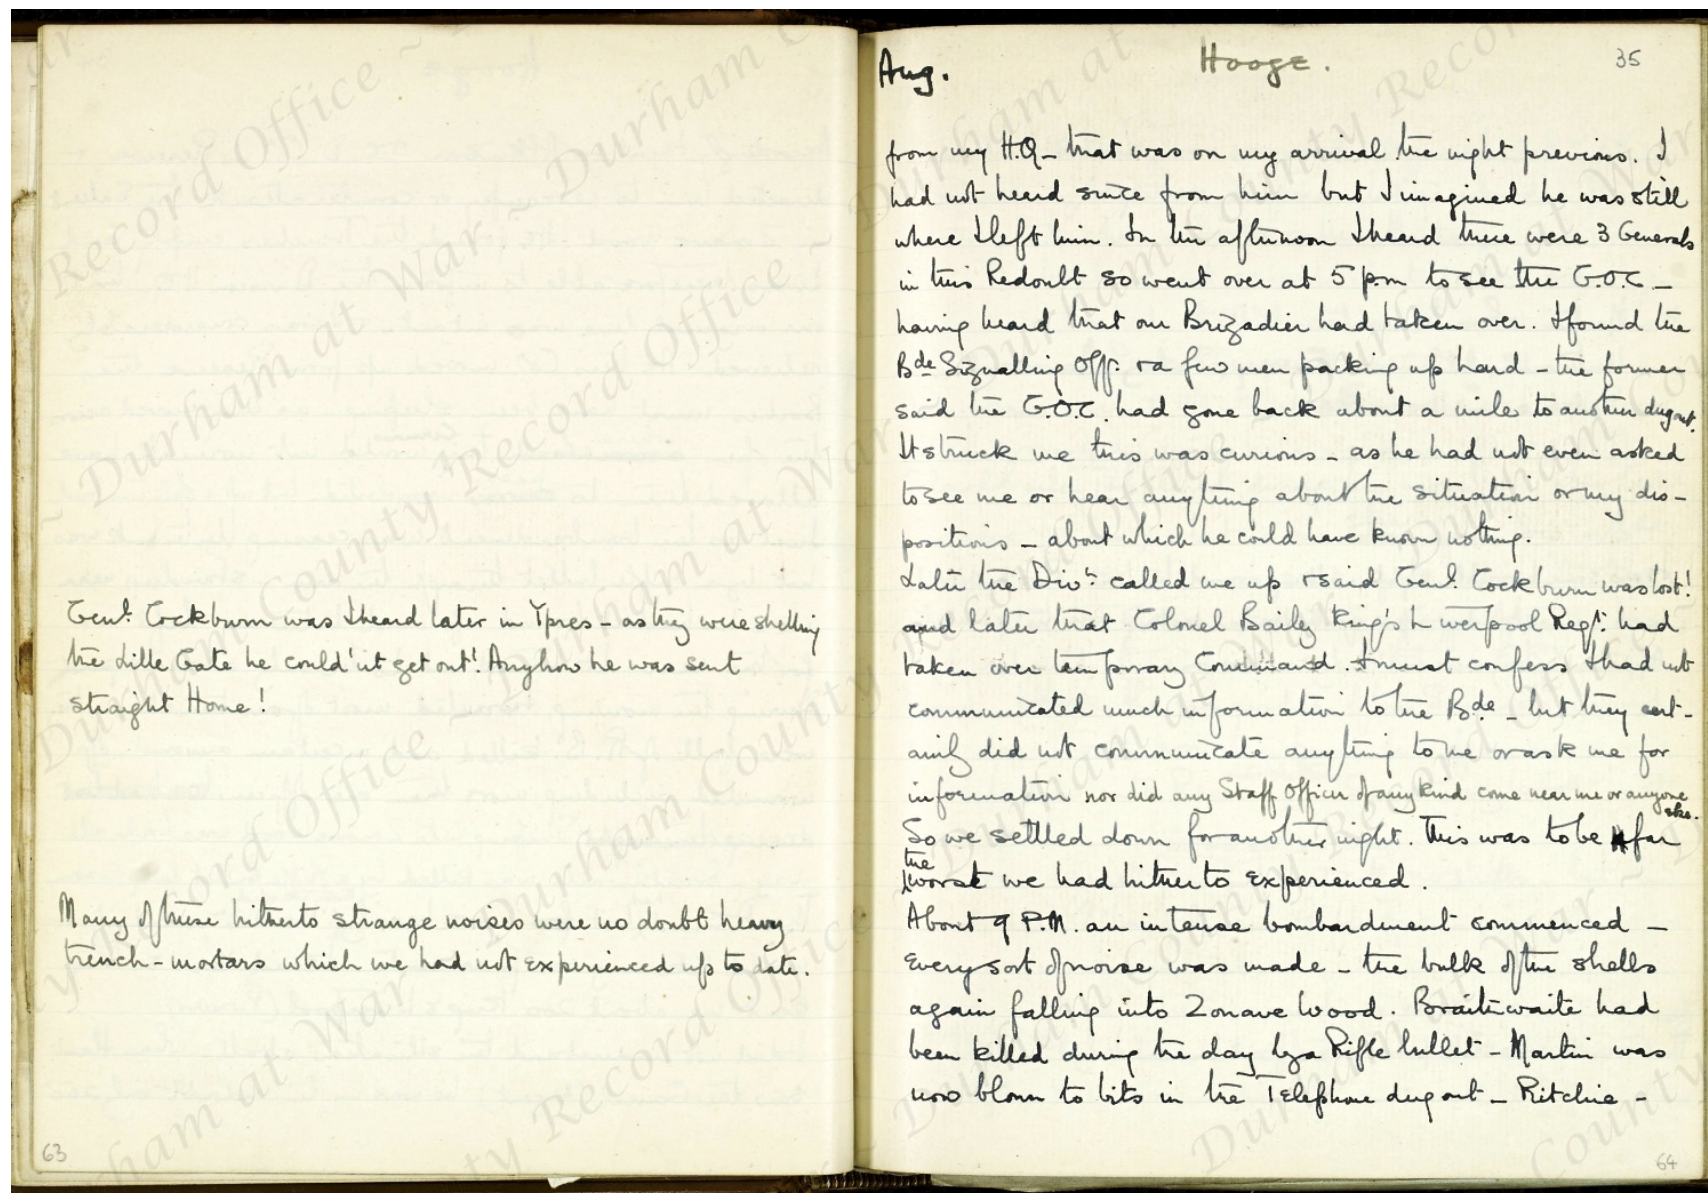 Genl. Cockburn was I heard later in Ypres - as they were shelling
the Lille Gate he could'nt get out! Anyhow he was sent
straight Home!
Many of these hitherto strange noises were no doubt heavy
trench-mortars which we had not experienced up to date.
63
Aug. Hooge. 35
from my H.Q - that was on my arrival the night previous. I
had not heard since from him but I imagined he was still
where I left him. In the afternoon I heard there were 3 Generals
in this Redoubt so went over at 5 p.m to see the G.O.C -
having heard that our Brigadier had taken over. I found the
Bde Signalling Off: & a few men packing up hard - the former
said the G.O.C. had gone back about a mile to another dugout.
It struck me this was curious - as he had not even asked
to see me or hear anything about the situation or my dis-
positions - about which he could have known nothing.
Later the Divn: called me up & said Genl. Cockburn was lost!
and later that Colonel Bailey King's Liverpool Regt: had
taken over temporary Command. I must confess I had not
communicated much information to the Bde - but they cert-
ainly did not communicate anything to me or ask me for
information nor did any Staff Officer of any kind come near me or anyone
else.
So we settled down for another night. This was to be far
the worst we had hitherto experienced.
About 9 P.M. an intense bombardment commenced -
Every sort of noise was made - the bulk of the shells
again falling into Zonave Wood. Braithwaite had
been killed during the day by a Rifle bullet - Martin was
now blown to bits in the Telephone dugout - Ritchie -
64